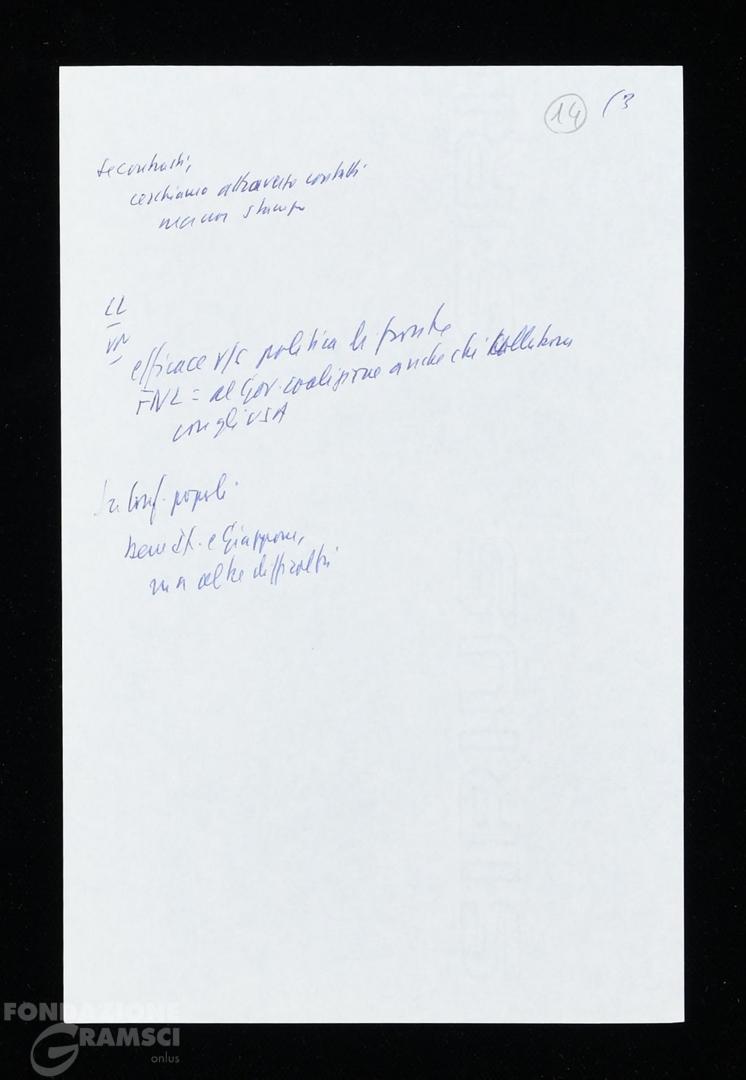 14 13
Se contrasti,
cerchiamo attraverso contatti
ma non stampa
LL
VN
efficace v/s politica di fronte
FNL = al Gov. coalizione anche chi collabora
con gli USA
Su Conf. popoli
bene It. e Giappone,
ma altre difficoltà
FONDAZIONE
GRAMSCI
onlus